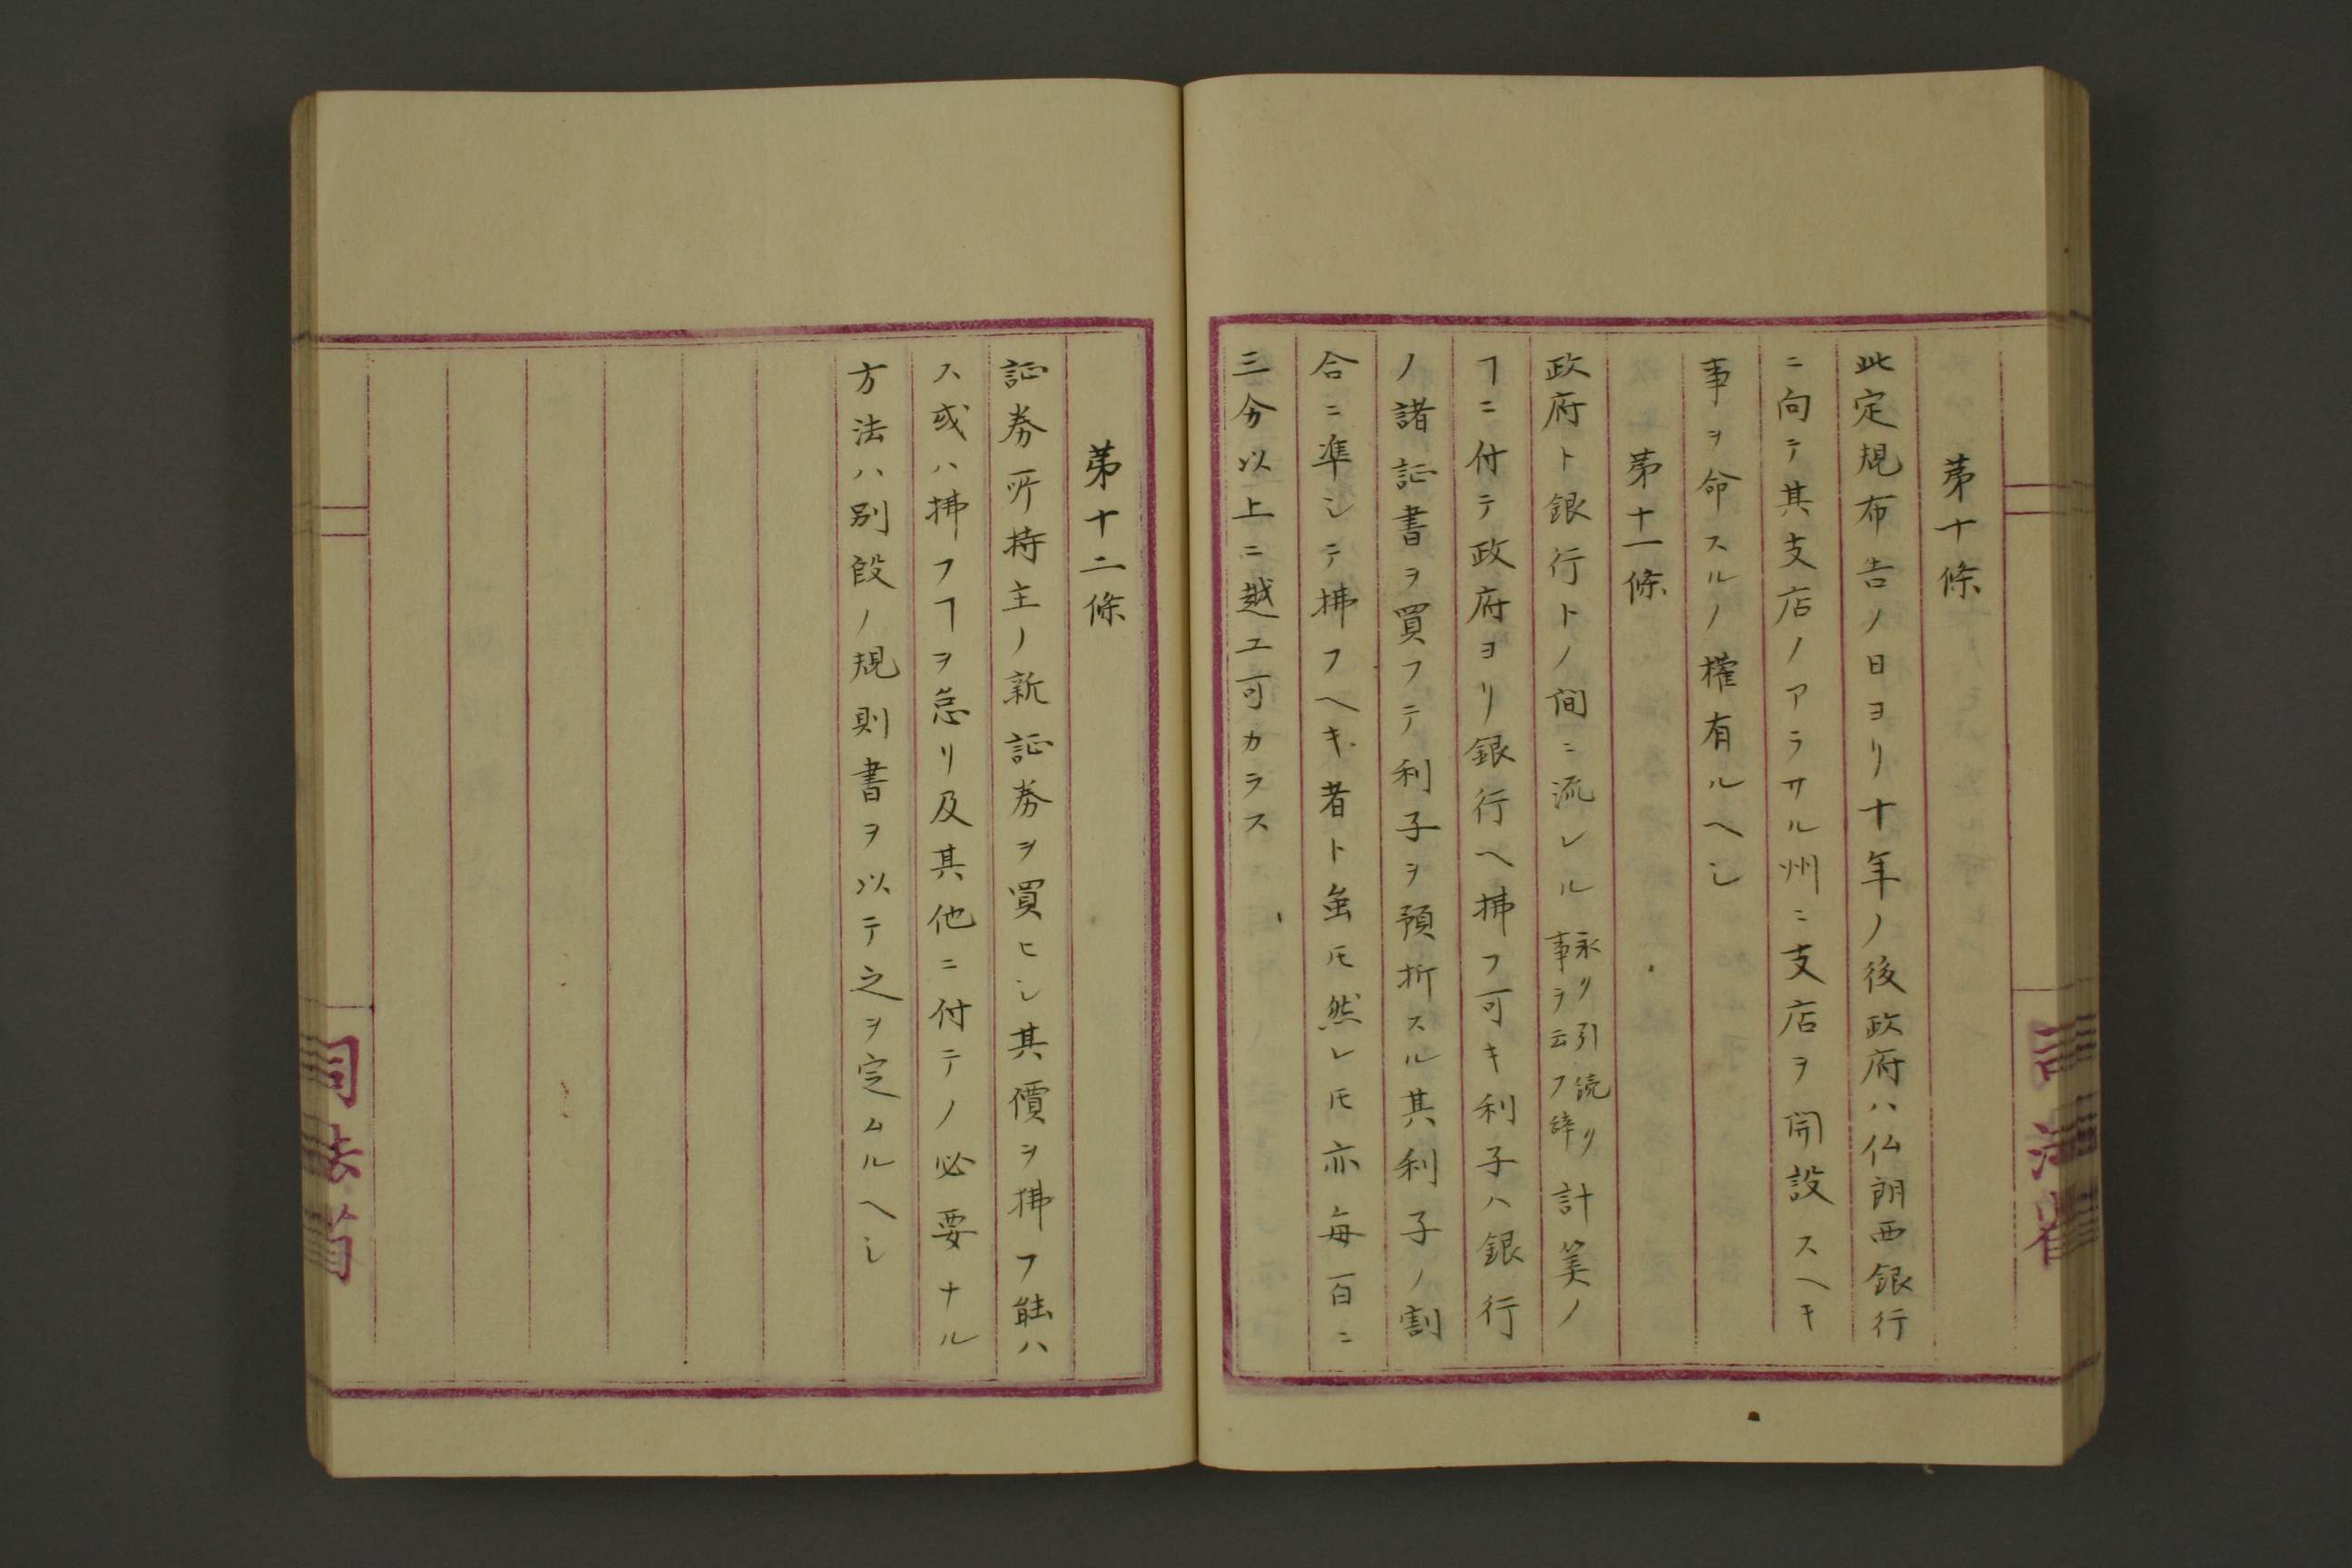 第十條
此定規布告ノ日ヨリ十年ノ後政府ハ仏朗西銀行
ニ向テ其支店ノアラサル州ニ支店ヲ開設スヘキ
事ヲ命スルノ權有ルヘシ
第十一條
政府ト銀行トノ間ニ流レル永ク引続ク事ヲ云フ辞計筭ノ
ヿニ付テ政府ヨリ銀行ヘ拂フ可キ利子ハ銀行
ノ諸証書ヲ買フテ利子ヲ預折スル其利子ノ割
合ニ準シテ拂フヘキ者ト虽𪜈然レ𪜈亦毎百ニ
三分以上ニ越ユ可カラス
司法省
第十二條
証券所持主ノ新証券ヲ買ヒシ其價ヲ拂フ能ハ
ス或ハ拂フヿヲ怠リ及其他ニ付テノ必要ナル
方法ハ別段ノ規則書ヲ以テ之ヲ定ムルヘシ
司法省